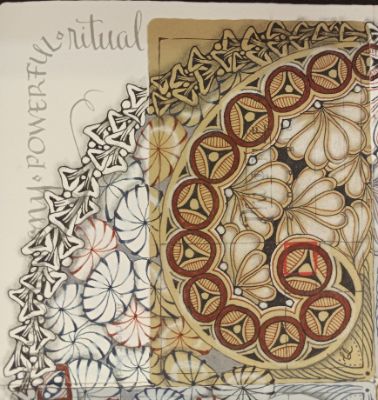 POWERFUL · ritual